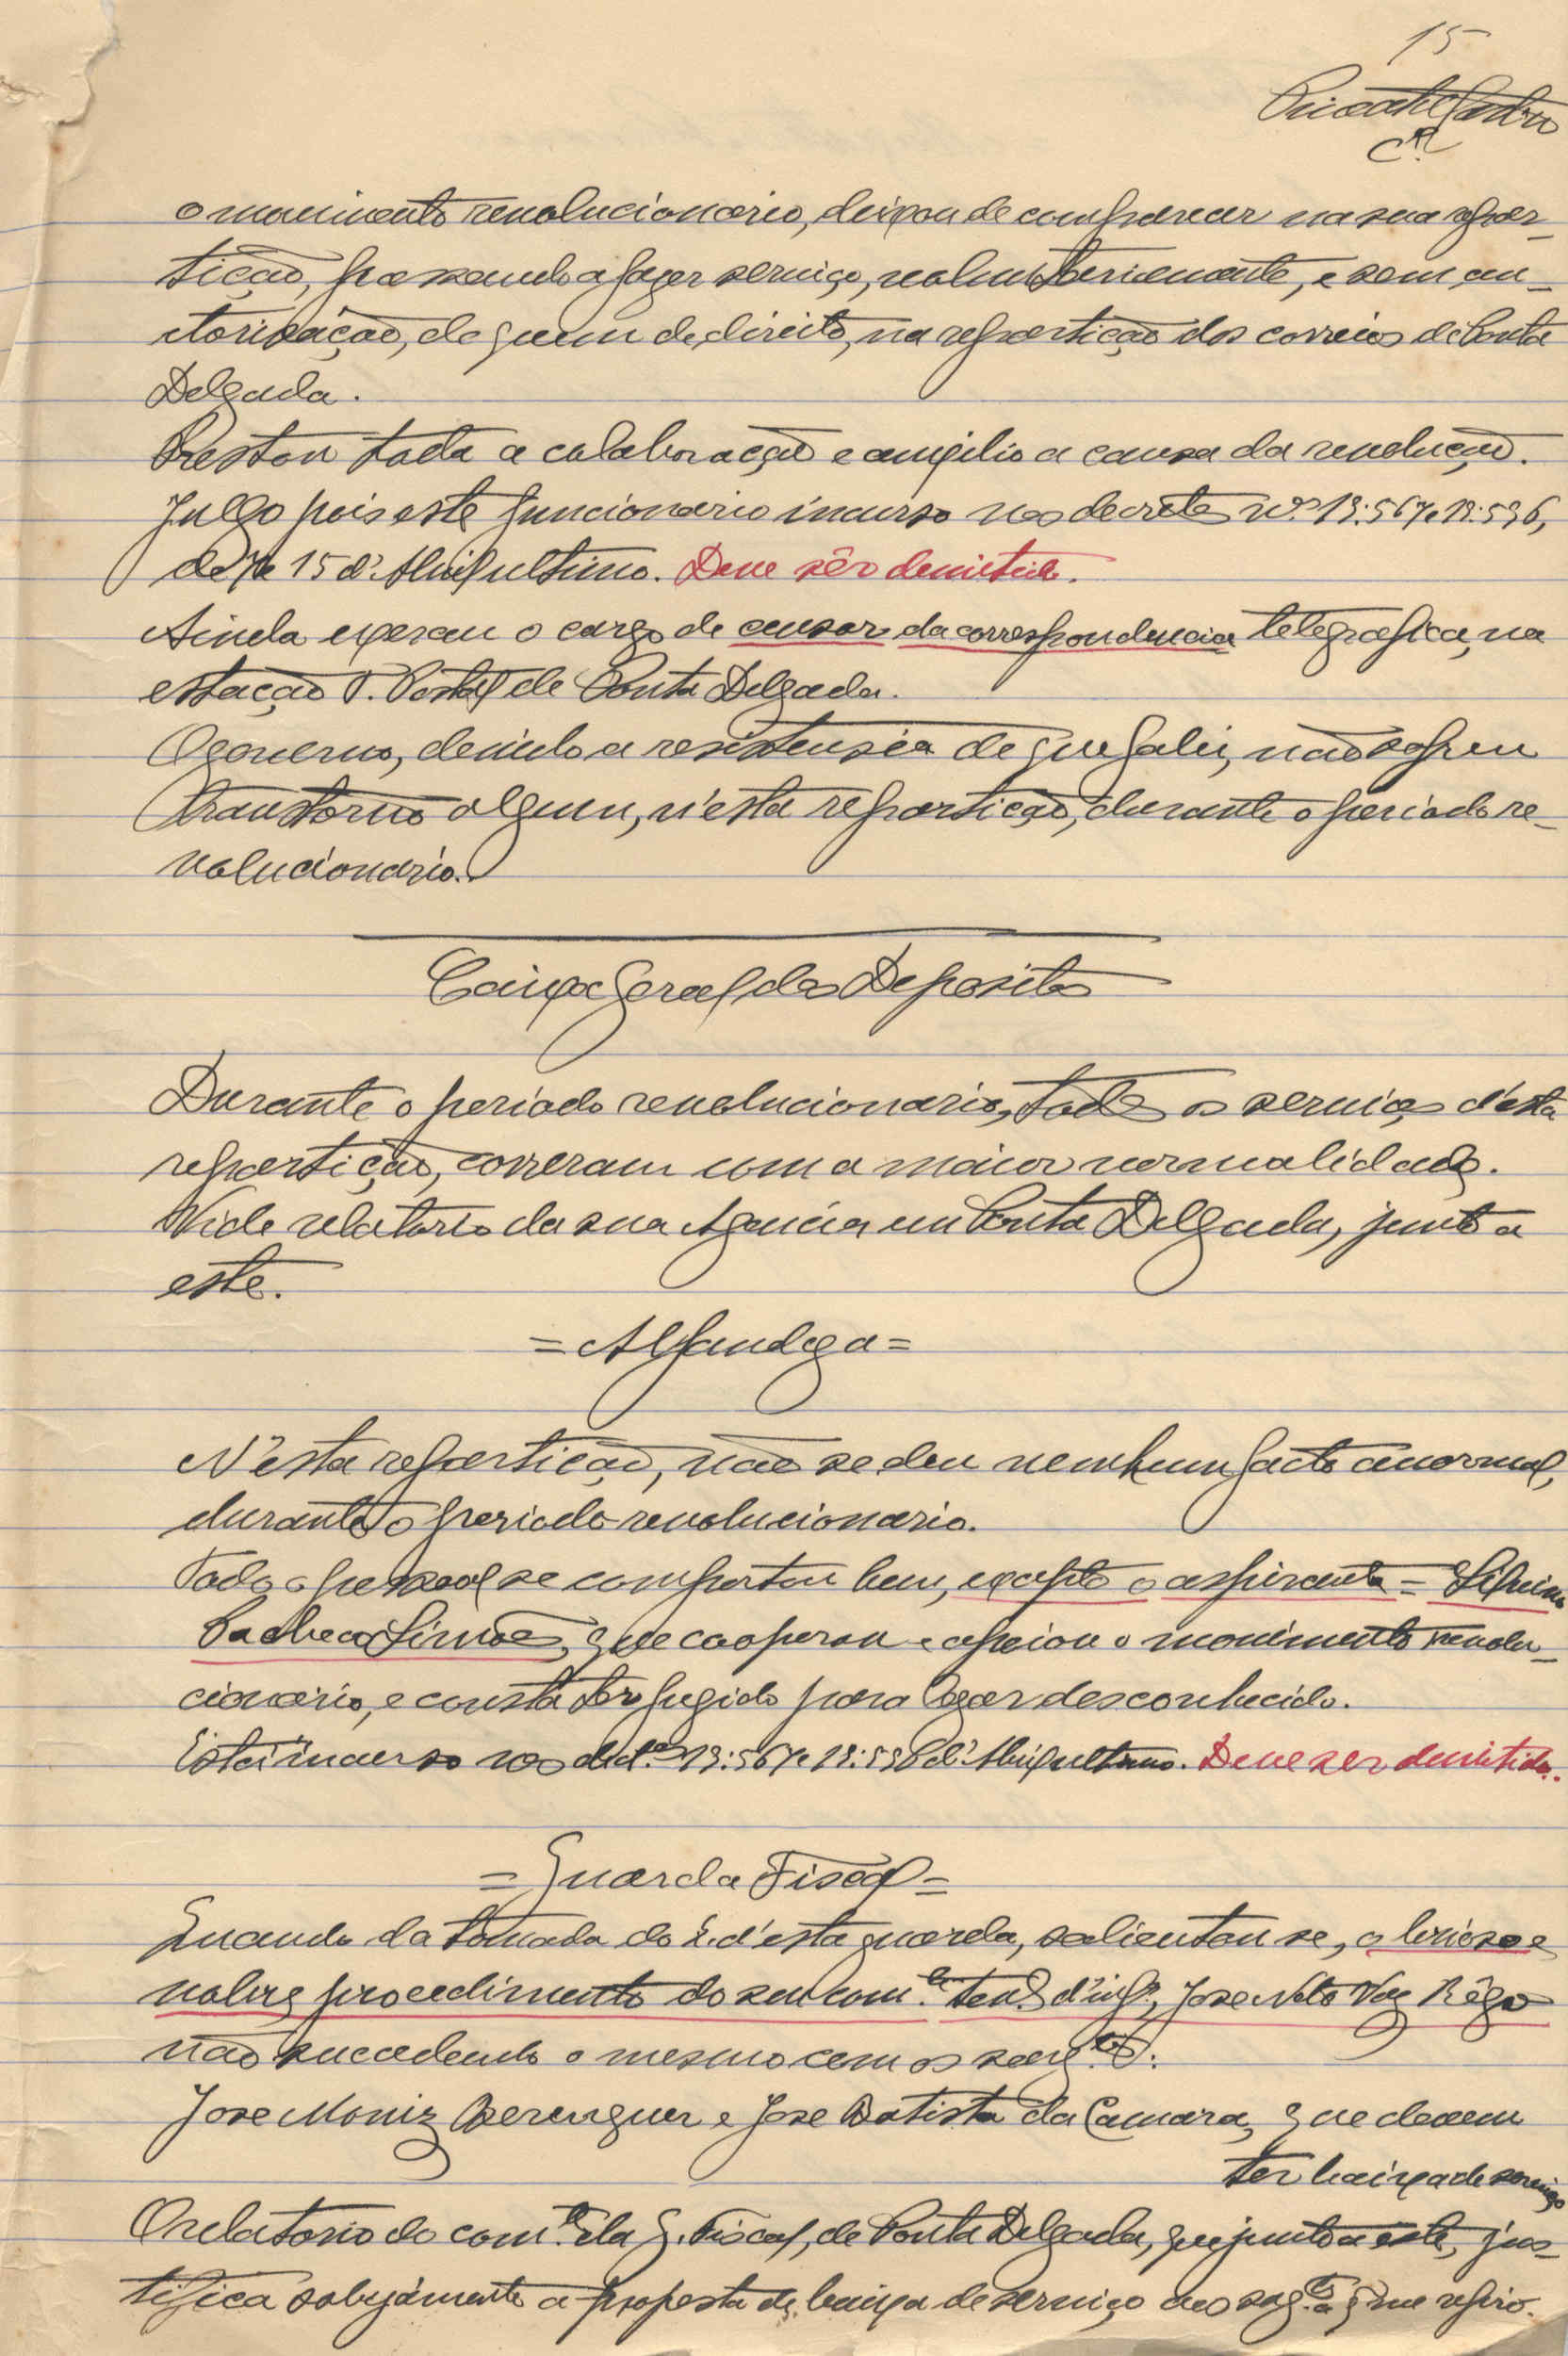 15
o movimento revolucionario, deixou de comparecer na sua repar-
tição, passando a fazer serviço, voluntariamente, e sem au-
torisação, de quem de direito, na repartição dos correios de Ponta
Delgada.
Prestou toda a colaboração e auxilio a causa da revolução.
Julgo pois este funcionario incurso nos decretos nos 19:567 e 19:596,
de 7 e 15 d'Abril ultimo. Deve sêr demitido.
Ainda exerceu o cargo de censor da correspondencia telegrafica, na
estação T. Postal de Ponta Delgada.
O governo, devido a resistensia de que falei, não sofreu
transtorno algum, n'esta repartição, durante o periodo re-
volucionario.
Caixa Geral dos Depositos
Durante o periodo revolucionario, todos os serviços d'esta
repartição, correram com a maior normalidade.
Vide relatorio da sua Agencia em Ponta Delgada, junto a
este.
= Alfandega =
N'esta repartição, não se deu nenhum facto anormal,
durante o periodo revolucionario.
Todo o pessoal se comportou bem, excepto o aspirante =
Pacheco Simões, que cooperou e apoiou o movimento revolu-
cionario, e consta ter fugido para logar desconhecido.
Está incurso nos dect.os 19:567 e 19:596 d'Abril ultimo. Deve ser demitido.
= Guarda Fiscal =
Quando da tomada do Q. d'esta guarda, salientou se, o brioso e
nobre procedimento do seu com.te ten.e d'inf.a, Jose Neto Vaz Rêgo
não sucedendo o mesmo com os sarg.tos:
Jose Moniz Berenguer e Jose Batista da Camara, que devem
ter baixa de serviço
O relatorio do com.te da G. Fiscal, de Ponta Delgada, que junto a este, jus-
tifica sobejamente a proposta de baixa de serviço aos sag.tos a que refiro.